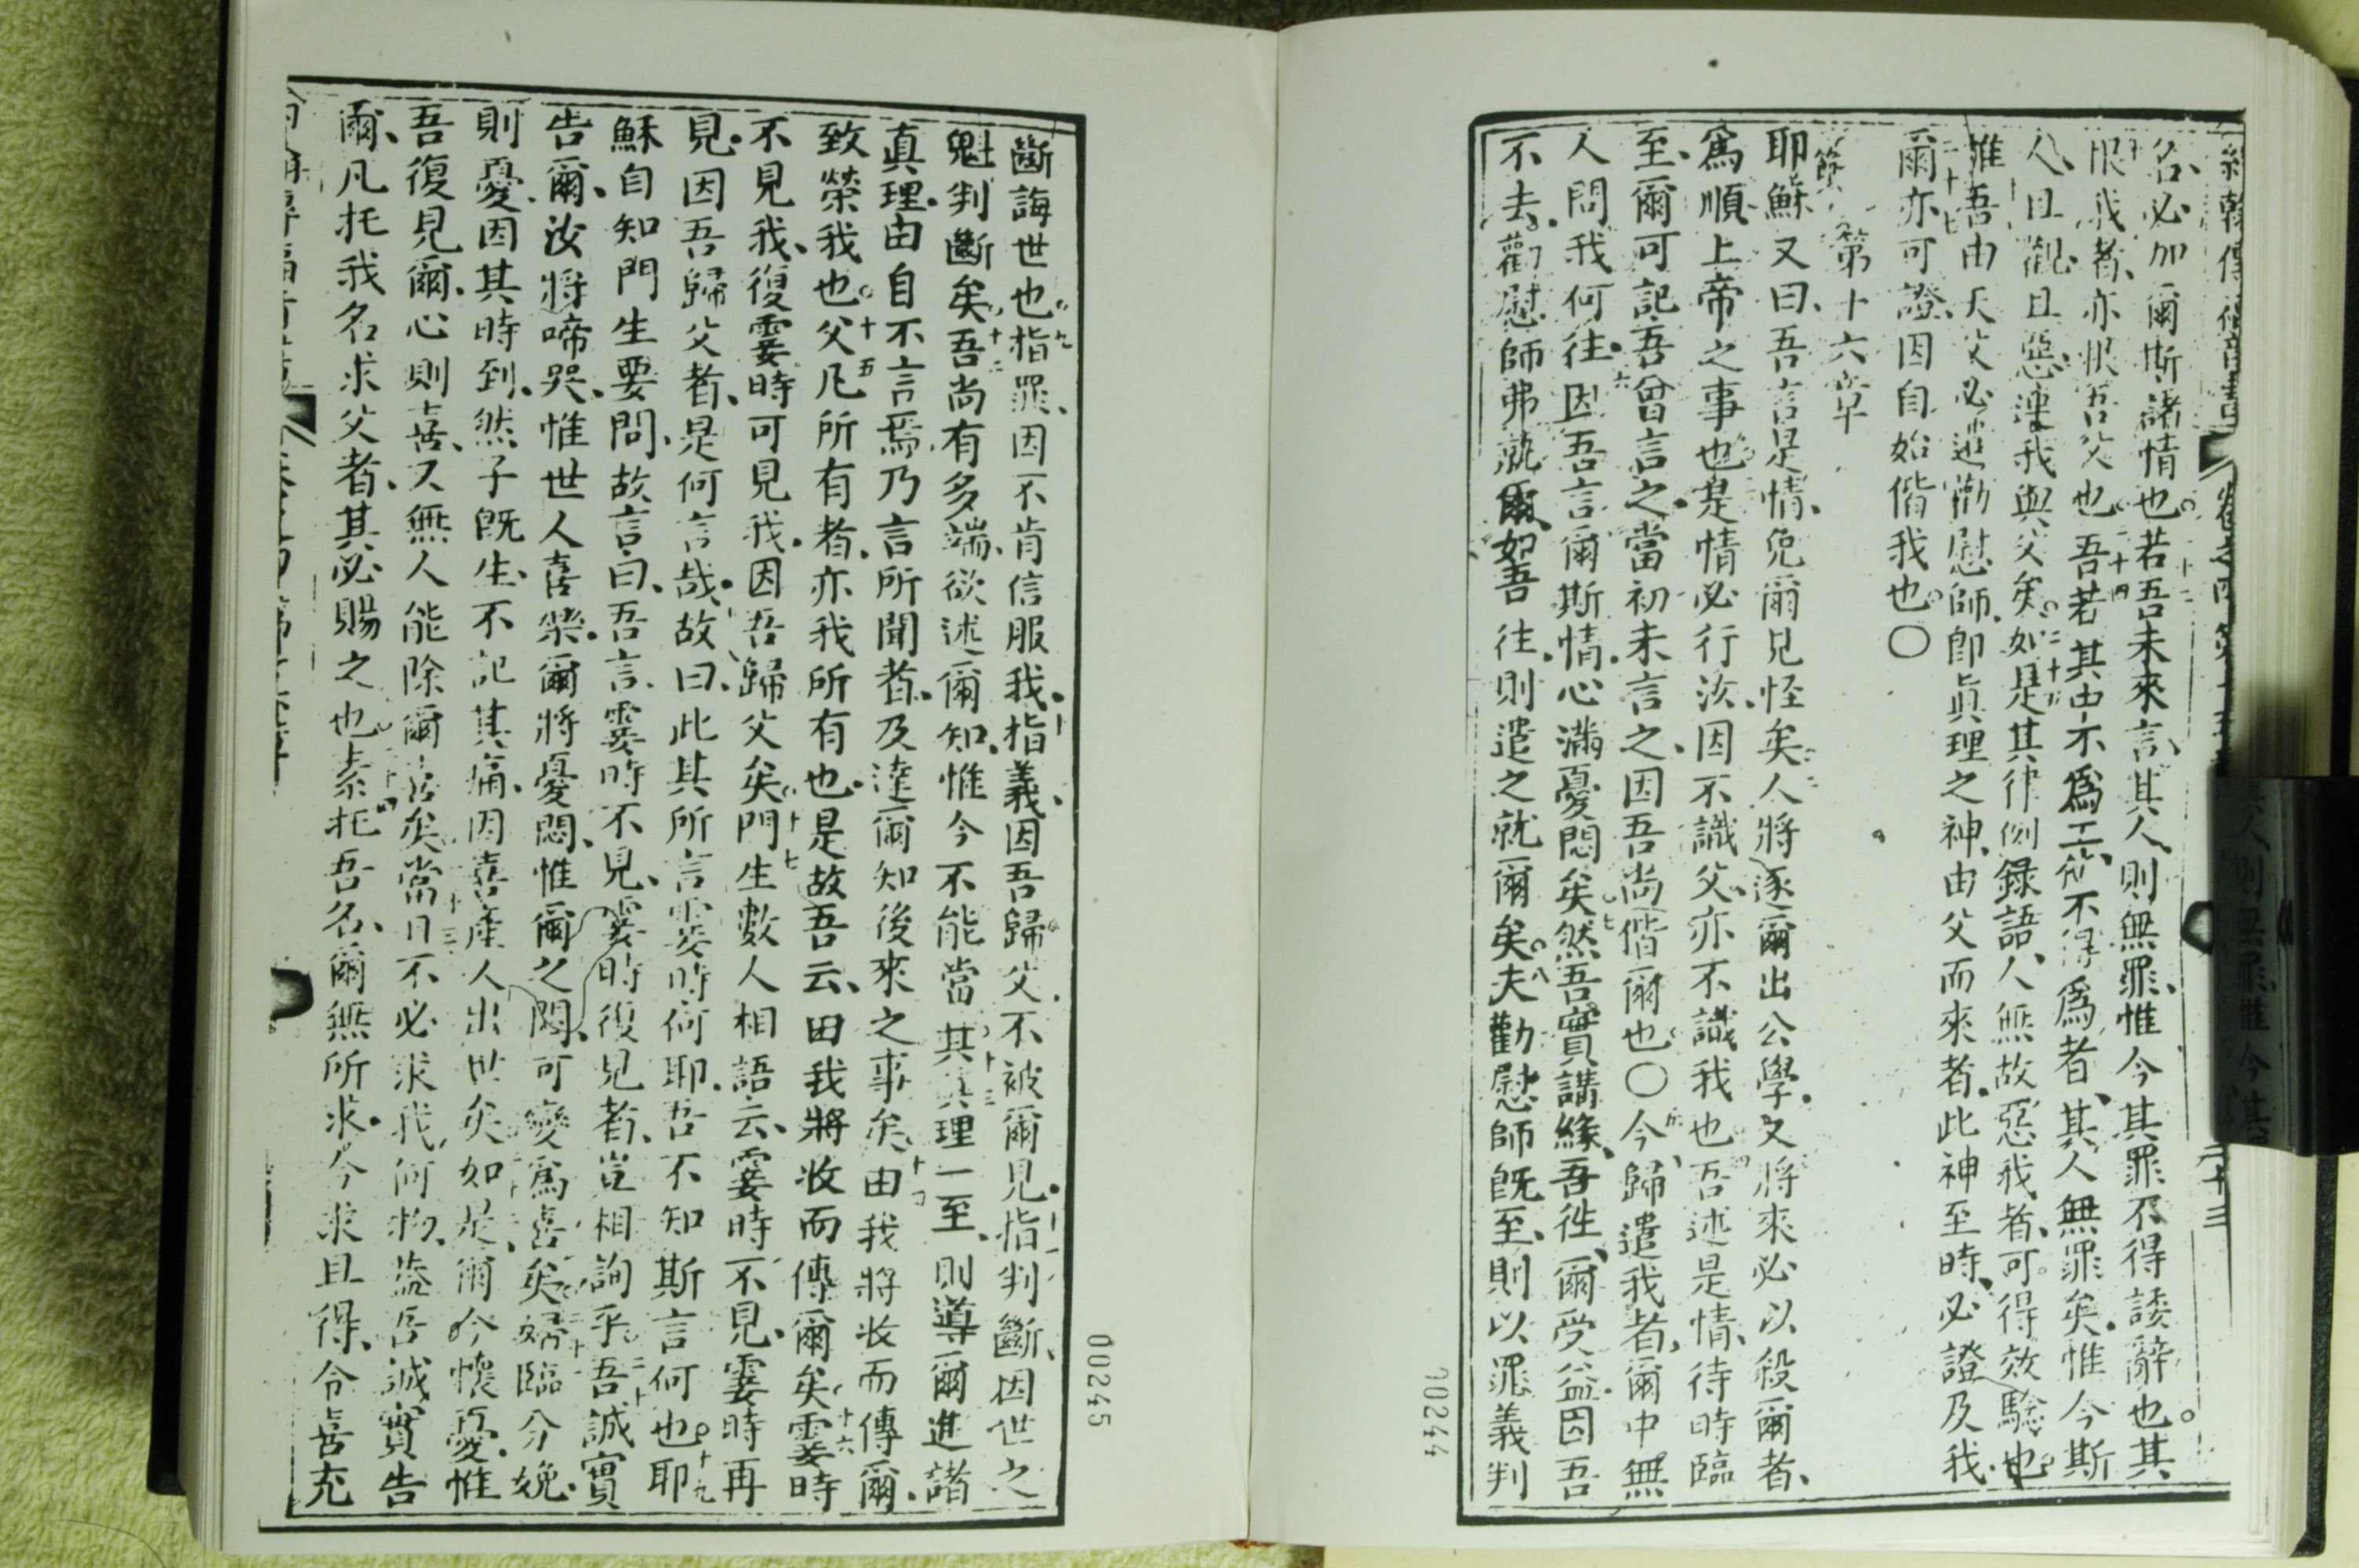 名必加爾斯諸情也若吾未來言其人則無罪惟今其罪不得諉辭也其
恨我者亦恨吾父也吾若其中不爲工彼不得爲者其人無罪矣惟今斯
人且觀且惡連我與父矣如是其律例錄語人無故惡我者可得效驗也
惟吾由天父必遣勸慰師卽眞理之神由父而來者此神至時必證及我
爾亦可證因自始偕我也〇
第十六章
節
耶穌又曰吾言是情免爾見怪矣人將逐爾出公學又將來必以殺爾者
爲順上帝之事也是情必行汝因不識父亦不識我也吾述是情待時臨
至爾可記吾曾言之當初未言之因吾尚偕爾也〇今歸遣我者爾中無
人問我何往因吾言爾斯情心滿憂悶矣然吾實講緣吾徃爾受益因吾
不去勸慰師弗就爾如吾往則遣之就爾矣夫勸慰師旣至則以罪義判
00244
斷誨世也指罪因不肯信服我指義因吾歸父不被爾見指判斷因世之
魁判斷矣吾尚有多端欲述爾知惟今不能當其眞理一至則導爾進諸
真理由自不言焉乃言所聞者及達爾知後來之事矣由我將收而傳爾
致榮我也父凡所有者亦我所有也是故吾云由我將收而傳爾矣霎時
不見我復霎時可見我因吾歸父矣門生數人相語云霎時不見霎時再
見因吾歸父者是何言哉故曰此其所言霎時何耶吾不知斯言何也耶
穌自知門生要問故言曰吾言霎時不見霎時復見者豈相詢乎吾誠實
告爾汝將啼哭惟世人喜樂爾將憂悶惟爾之悶可變爲喜矣婦臨分娩
則憂因其時到然子旣生不記其痛因喜產人出世矣如是爾今懷憂惟
吾復見爾心則喜又無人能除爾喜矣當日不必求我何物蓋吾誠實告
爾凡托我名求父者其必賜之也素托吾名爾無所求今求且得令喜充
00245